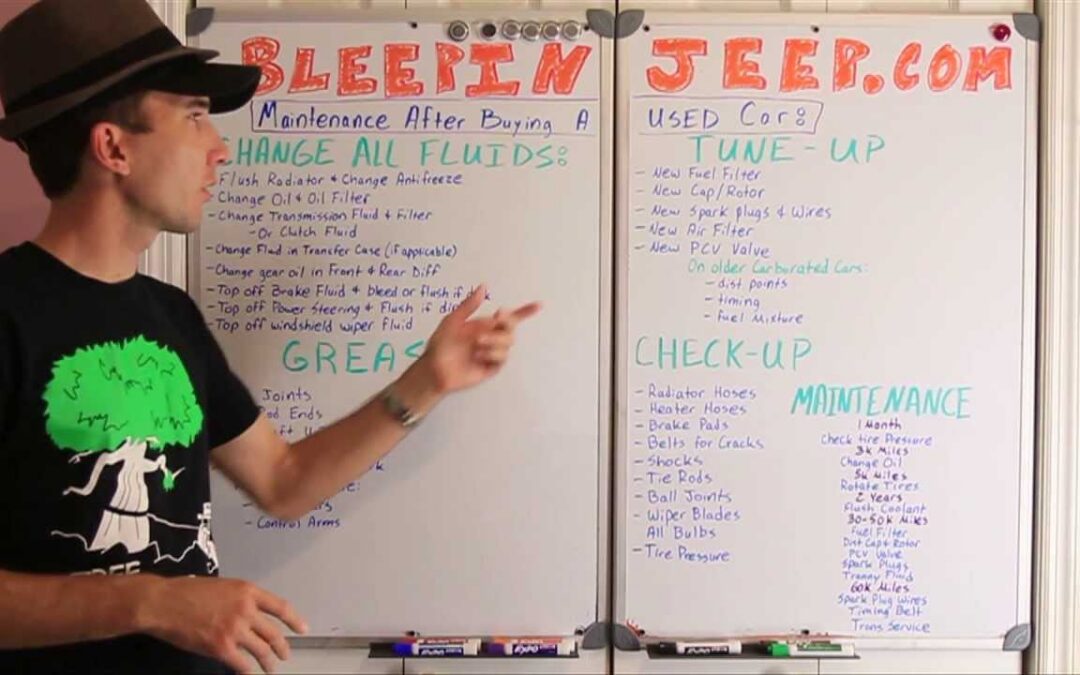 BLEEPIN JEEP.COM
Maintenance After Buying A USED Car:
CHANGE ALL FLUIDS:
Flush Radiator & Change Antifreeze
- Change Oil & Oil Filter
- Change Transmission Fluid & Filter
- Or Clutch Fluid
- Change Fluid in Transfer Case (if applicable)
- Change gear oil in Front & Rear Diff
- Top off Brake Fluid & bleed or flush if
- Top off Power Steering & Flush if
- Top off windshield wiper fluid
GREAS
Joints
Rod Ends
- Control Arms
TUNE-UP
- New Fuel Filter
- New Cap/Rotor
- New Spark plugs & Wires
- New Air Filter
- New PCV Valve
On older Carborated Cars:
- dist points
- timing
- fuel Mixture
CHECK-UP
- Radiator Hoses
- Heater Hoses
- Brake Pads
- Belts for Cracks
- Shocks
- Tie Rods
- Ball Joints
- Wiper Blades
All Bulbs
- Tire Pressure
MAINTENANCE
1 Month
Check tire Pressure
3k Miles
Change Oil
5k Miles
Rotate Tires
2 Years
Flush Coolant
30-50k Miles
Fuel Filter
Dist Cap & Rotor
PCV Valve
Spark Plugs
Tranny Fluid
60k Miles
Spark Plug Wires
Timing Belt
Trans Service
TREE